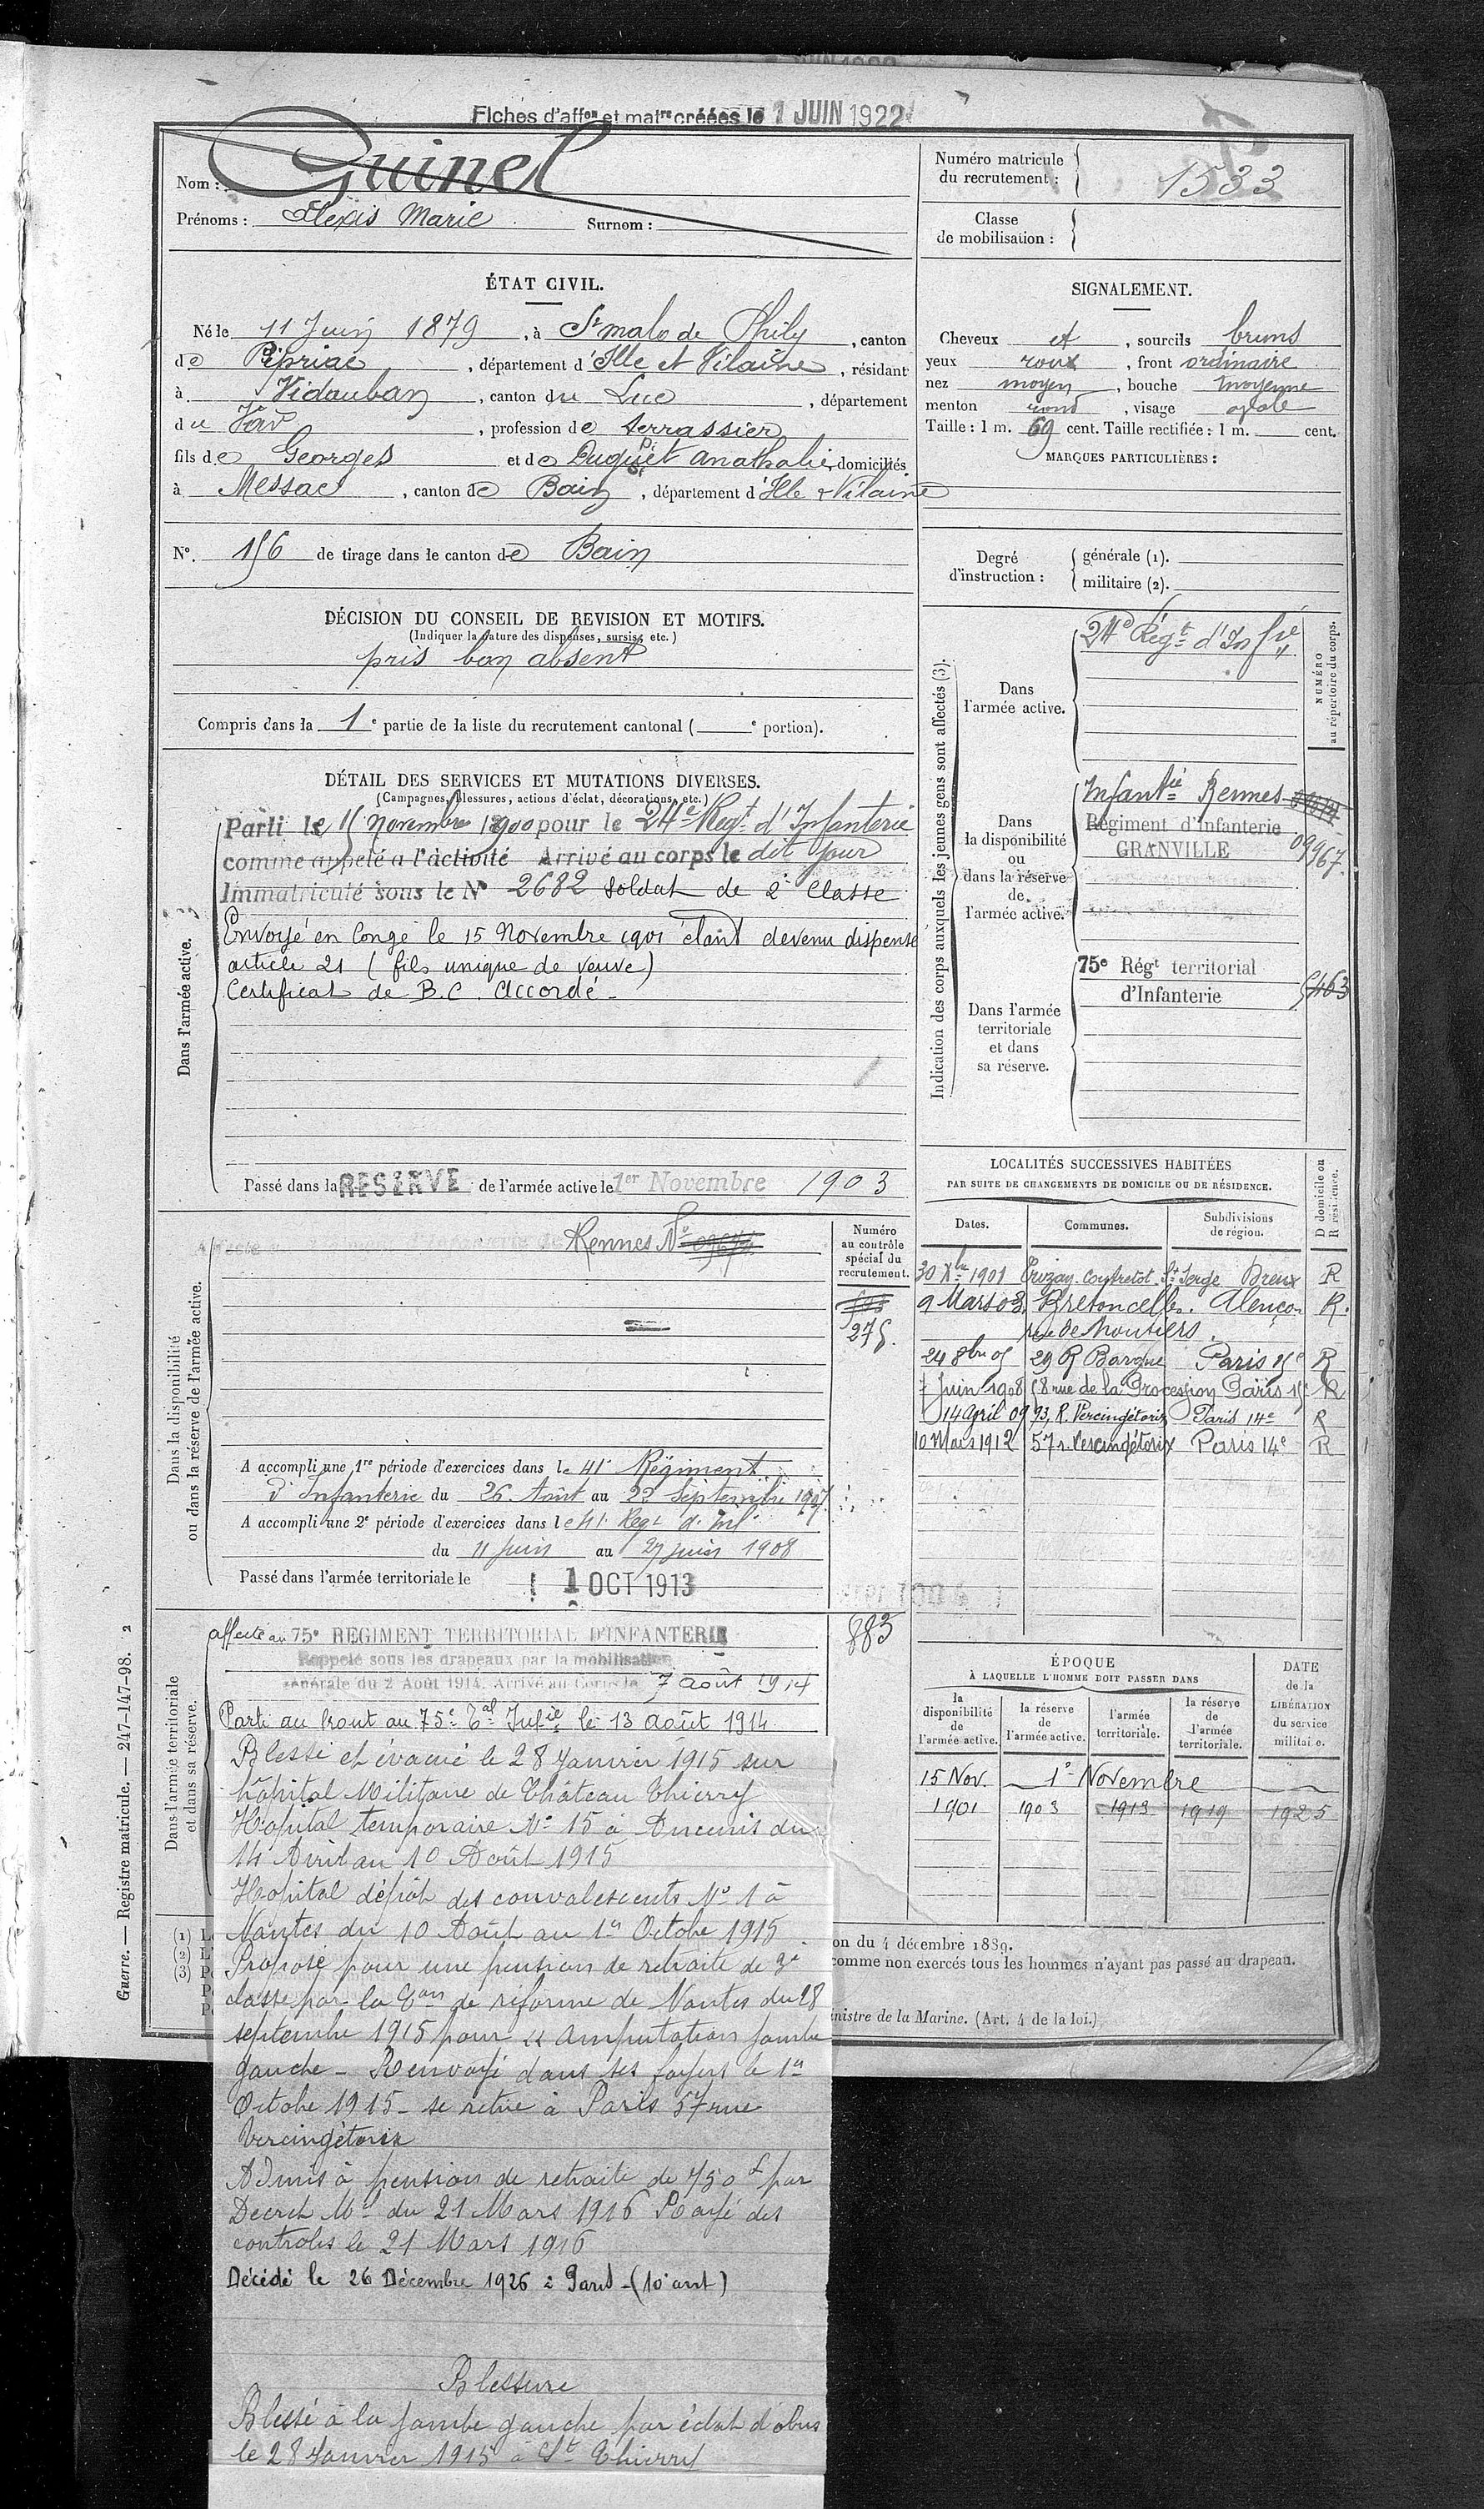 Fiches d'affon et matre créées le 1 JUIN 1922
Nom : Guinel
Prénoms : Alexis Marie Surnom :
Numéro matricule
du recrutement : 1533
Classe
de mobilisation :
ÉTAT CIVIL.
Né le 11 Juin 1879, à St malo de Phily, canton
de Pipriac, département d'Ille et Vilaine, résidant
à Vidauban, canton du Luc, département
du Var, profession de terrassier
fils de Georges et de Duguet Anathalie, domiciliés
à Messac, canton de Bain, département d'Ille & Vilaine
N°. 156 de tirage dans le canton de Bain
SIGNALEMENT.
Cheveux et, sourcils bruns
yeux roux, front ordinaire
nez moyen, bouche moyenne
menton rond, visage ovale
Taille : 1 m. 69 cent. Taille rectifiée : 1 m. cent.
MARQUES PARTICULIÈRES :
Degré
d'instruction :
générale (1).
militaire (2).
DÉCISION DU CONSEIL DE REVISION ET MOTIFS.
(Indiquer la nature des dispenses, sursis, etc.)
pris bon absent
Compris dans la 1e partie de la liste du recrutement cantonal ( e portion).
DÉTAIL DES SERVICES ET MUTATIONS DIVERSES.
(Campagnes, blessures, actions d'éclat, décorations, etc.)
Dans l'armée active.
Parti le 15 novembre 1900 pour le 24e Regt d'Infanterie
comme appelé à l'activité Arrivé au corps le dit jour
Immatriculé sous le N° 2682 soldat de 2e Classe
Envoyé en congé le 15 Novembre 1901 étant devenu dispensé
article 21 (fils unique de veuve)
Certificat de B.C. Accordé -
Passé dans la RESERVE de l'armée active le 1er Novembre 1903
Indication des corps auxquels les jeunes gens sont affectés (3).
NUMÉRO
au répertoire du corps.
Dans
l'armée active.
24e Régt d'Infie
Dans
la disponibilité
ou
dans la réserve
de
l'armée active.
Infantie Rennes
Régiment d'Infanterie
GRANVILLE
09967
Dans l'armée
territoriale
et dans
sa réserve.
75e Régt territorial
d'Infanterie
5463
LOCALITÉS SUCCESSIVES HABITÉES
PAR SUITE DE CHANGEMENTS DE DOMICILE OU DE RÉSIDENCE.
Dates. Communes. Subdivisions de région. D domicile ou R résidence.
30 Xbre 1901 Trizay Coutretot St Serge Dreux R
9 Mars 03 Bretoncelles. Alençon R.
rue de Moutiers
24 8bre 05 29 R Bargue Paris 15e R
7 Juin 1908 58 rue de la Procession Paris 15e R
14 April 09 93, R. Vercingétorix Paris 14e R
10 Mars 1912 57 r. Vercingétorix Paris 14e R
Dans la disponibilité
ou dans la réserve de l'armée active.
Rennes N°
Numéro
au contrôle
spécial du
recrutement.
275.
A accompli une 1re période d'exercices dans le 41e Régiment
d'Infanterie du 26 Août au 22 Septembre 1907
A accompli une 2e période d'exercices dans le 41e Regt d'Inf
du 11 juin au 27 juin 1908
Passé dans l'armée territoriale le 1 OCT 1913
Dans l'armée territoriale
et dans sa réserve.
affecté au 75e REGIMENT TERRITORIAL D'INFANTERIE
883
Rappelé sous les drapeaux par la mobilisation
générale du 2 Août 1914. Arrivé au Corps le 7 août 1914
Parti au front au 75e Tal Infie le 13 août 1914
Blessé et évacué le 28 Janvier 1915 sur
hôpital Militaire de Château Thierry
Hôpital temporaire N° 15 à Ancenis du
14 Avril au 10 Août 1915
Hôpital dépôt des convalescents N° 1 à
Nantes du 10 Août au 1er Octobre 1915
Proposé pour une pension de retraite de 3e
classe par la Con de réforme de Nantes du 28
septembre 1915 pour « Amputation jambe
gauche - Renvoyé dans ses foyers le 1er
Octobre 1915 - se retire à Paris 57 rue
Vercingétorix
Admis à pension de retraite de 750f par
Decret Mel du 21 Mars 1916 Rayé des
controles le 21 Mars 1916
Décédé le 26 Décembre 1926 à Paris - (10e arrt)
Blessure
Blessé à la jambe gauche par éclat d'obus
le 28 Janvier 1915 à St Thierry
ÉPOQUE
À LAQUELLE L'HOMME DOIT PASSER DANS
la disponibilité de l'armée active.
la réserve de l'armée active.
l'armée territoriale.
la réserve de l'armée territoriale.
DATE de la LIBÉRATION du service militaire.
15 Nov. 1er Novembre
1901 1903 1913 1919 1925
on du 4 décembre 1889.
comme non exercés tous les hommes n'ayant pas passé au drapeau.
inistre de la Marine. (Art. 4 de la loi.)
(1) L
(2) L'
(3) P
Guerre. — Registre matricule. — 247-147-98. 2